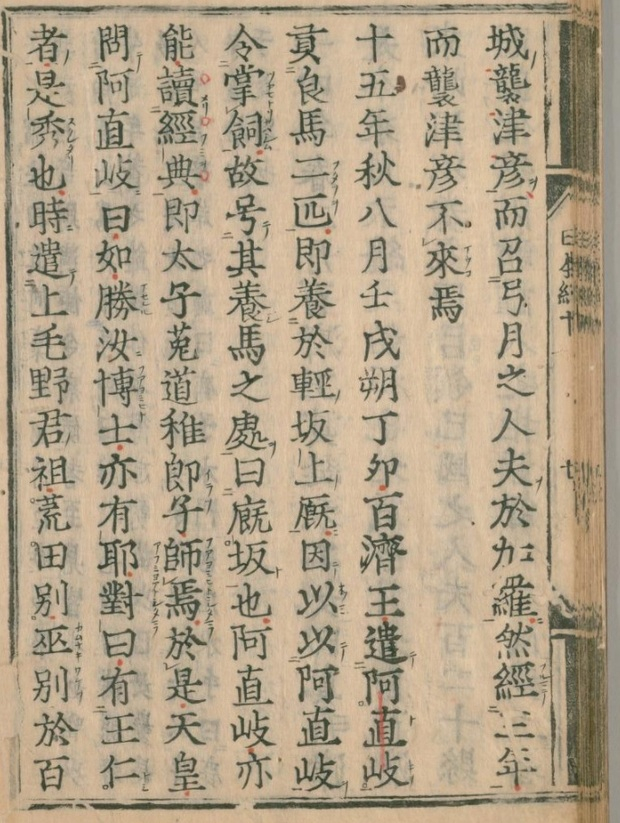 城襲津彦而召弓月之人夫於加羅然經三年
而襲津彦不來焉
十五年秋八月壬戌朔丁卯百濟王遣阿直岐
貢良馬二匹即養於輕坂上厩因以以阿直岐
令掌飼故号其養馬之處曰厩坂也阿直岐亦
能讀經典即太子菟道稚郎子師焉於是天皇
問阿直岐曰如勝汝博士亦有耶對曰有王仁
者是秀也時遣上毛野君祖荒田別巫別於百